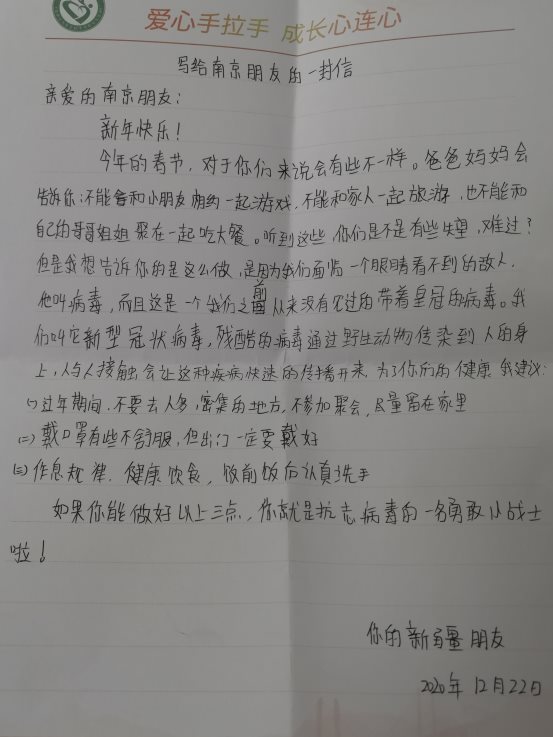 爱心手拉手 成长心连心
写给南京朋友的一封信
亲爱的南京朋友：
新年快乐！
今年的春节，对于你们来说会有些不一样。爸爸妈妈会
告诉你：不能和小朋友相约一起游戏，不能和家人一起旅游，也不能和
自己的哥哥姐姐聚在一起吃大餐。听到这些，你们是不是有些失望，难过？
但是我想告诉你的是这么做，是因为我们面临一个眼睛看不到的敌人，
他叫病毒，而且这是一个我们之前从来没有见过的带着皇冠的病毒。我
们叫它新型冠状病毒，残酷的病毒通过野生动物传染到人的身
上，人与人接触会让这种疾病快速的传播开来，为了你们的健康，我建议：
(一)过年期间，不要去人多，密集的地方，不参加聚会，尽量留在家里
(二)戴口罩有些不舒服，但出门一定要戴好
(三)作息规律，健康饮食，饭前饭后认真洗手
如果你能做好以上三点，你就是抗击病毒的一名勇敢小战士
啦！
你的新疆朋友
2020年12月22日